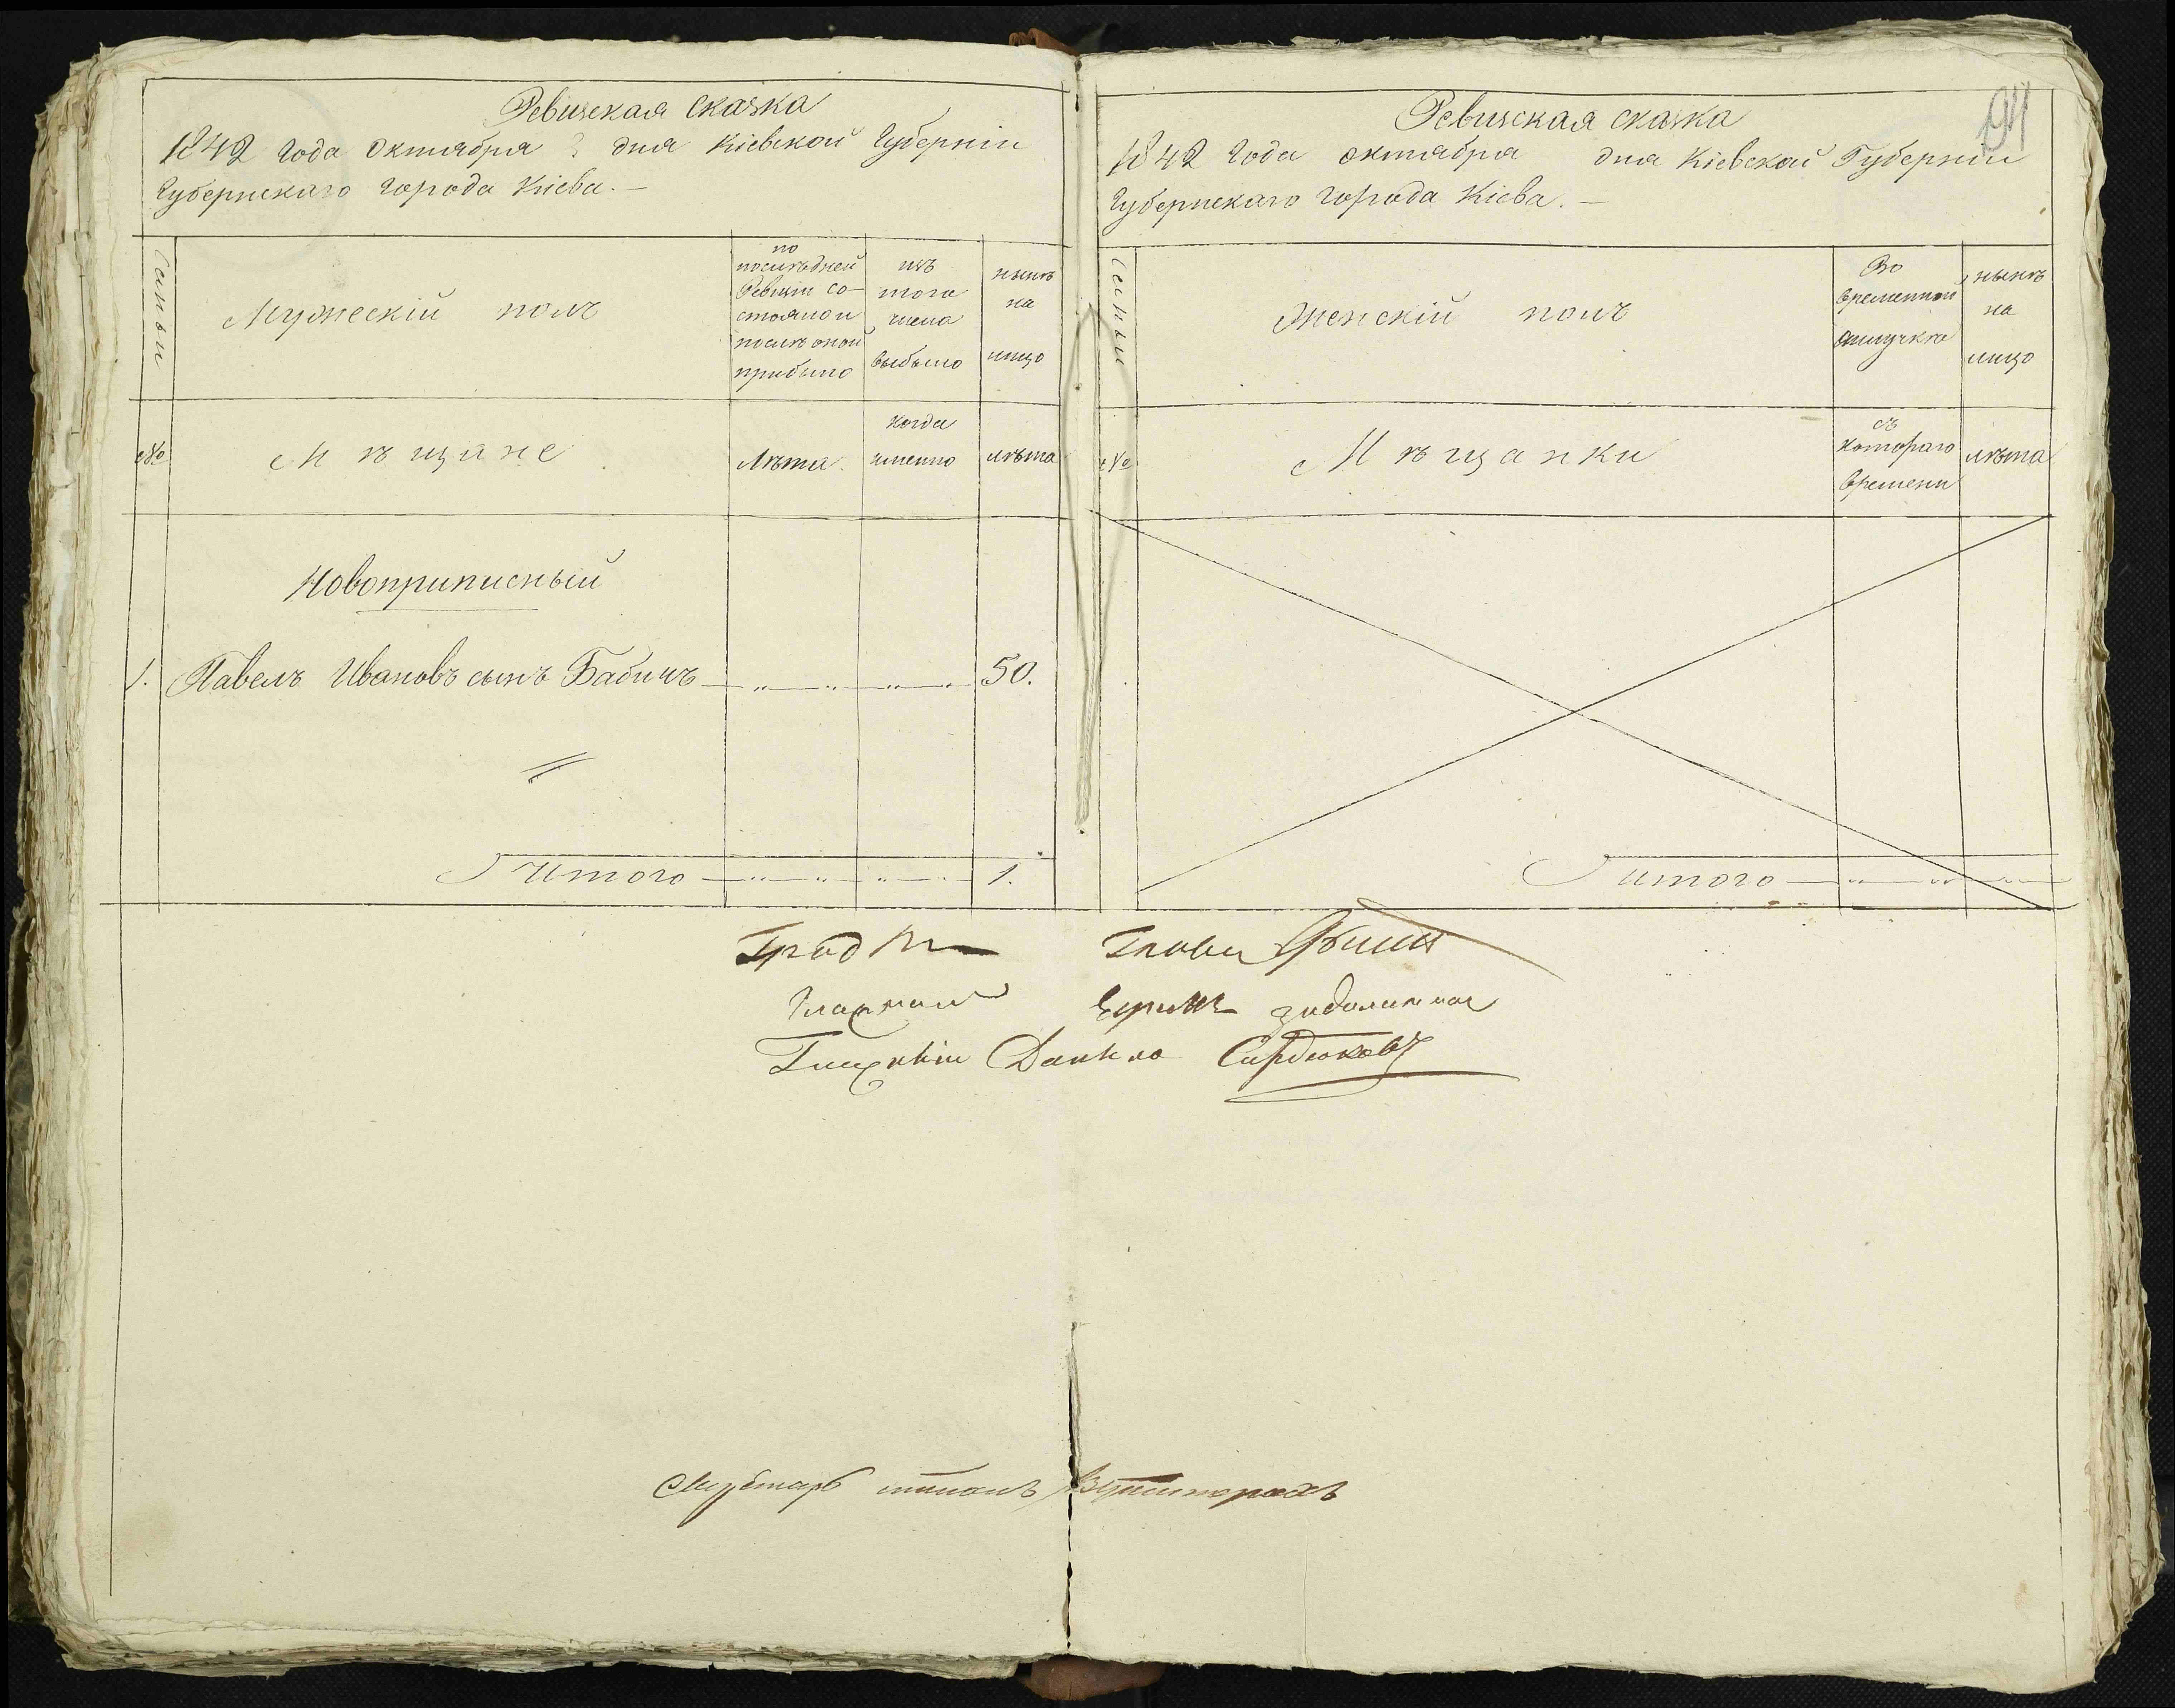 Ревизская сказка
1842 года октября 3 дня Кіевской Губерніи
Губернскаго города Кіева. —
Семьи
Мужескій полъ
по последней Ревизіи состояло и после оной прибыло
изъ того числа выбыло
ныне на лицо
№
Мѣщане
Лѣта.
когда именно
лѣта
Новоприписный
1. Павелъ Ивановъ сынъ Бабичъ — " — " — " — 50.
Итого — " — " — " — 1.
194
Ревизская сказка
1842 года октября дня Кіевской Губерніи
Губернскаго города Кіева. —
Семьи
Женскій полъ
Во временной отлучкѣ
нынѣ на лицо
№
Мѣщанки
съ котораго времени
лѣта
итого — " — " — " —
Град
Глава
Гласный
Гласный Данило Сердюковъ